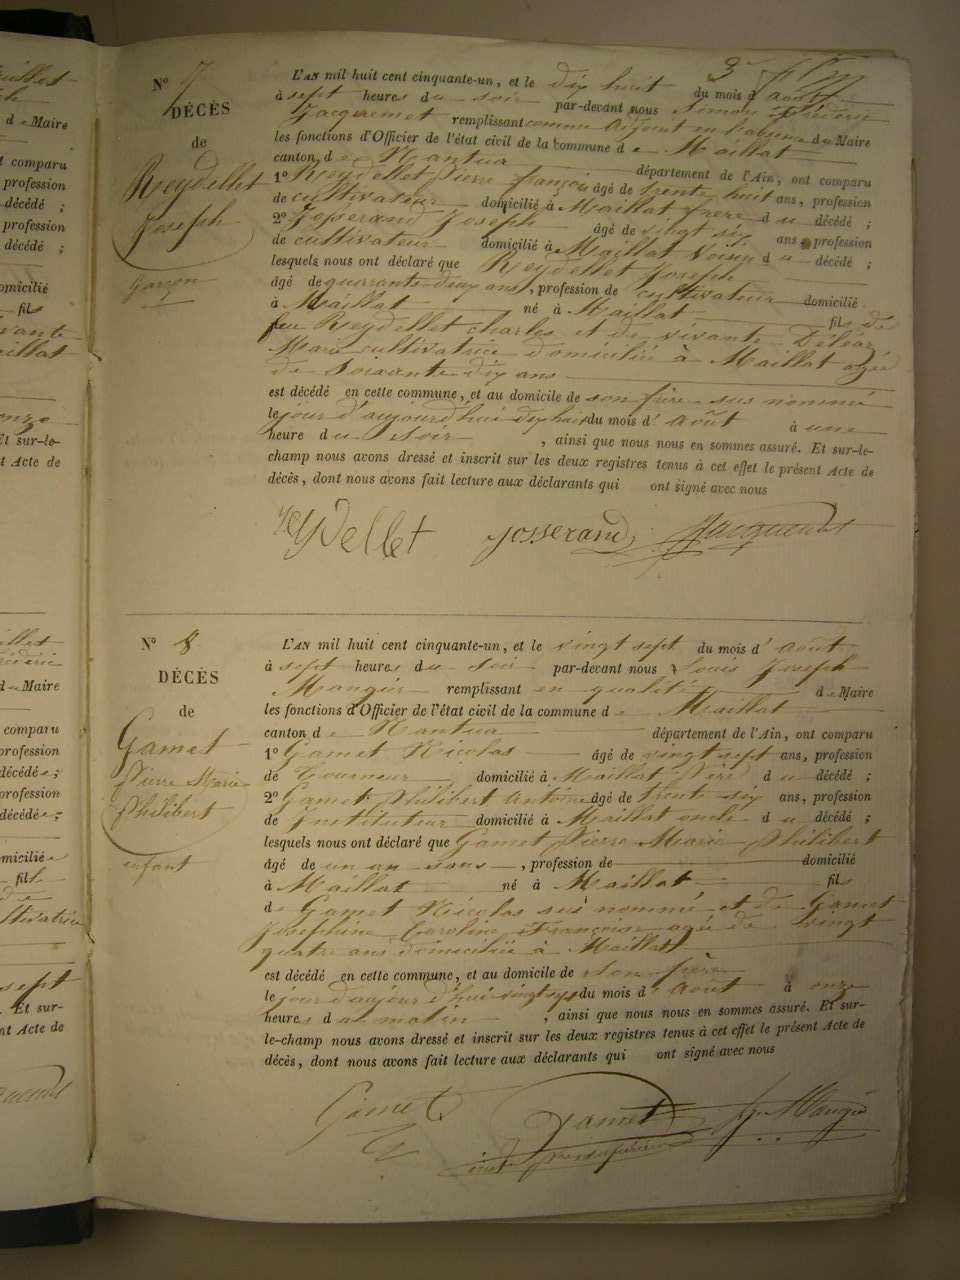 N° 7
DÉCÈS
de
Reydellet
Joseph
Garçon
L'AN mil huit cent cinquante-un, et le dix huit du mois d'août
à sept heures du soir par-devant nous Simon Frédéric
Jacquemet remplissant comme adjoint en l'absence du Maire
les fonctions d'Officier de l'état civil de la commune de Maillat
canton de Nantua département de l'Ain, ont comparu
1° Reydellet Pierre françois âgé de trente huit ans, profession
de cultivateur domicilié à Maillat frère du décédé ;
2° Josserand Joseph âgé de vingt six ans, profession
de cultivateur domicilié à Maillat voisin du décédé ;
lesquels nous ont déclaré que Reydellet Joseph
âgé de quarante deux ans, profession de cultivateur domicilié
à Maillat né à Maillat fils de
feu Reydellet charles et de vivante
Marie cultivatrice domiciliée à Maillat agée
de soixante dix ans
est décédé en cette commune, et au domicile de son frère sus nommé
le jour d'aujourd'hui dix huit du mois d'août à une
heure du soir , ainsi que nous nous en sommes assuré. Et sur-le-
champ nous avons dressé et inscrit sur les deux registres tenus à cet effet le présent Acte de
décès, dont nous avons fait lecture aux déclarants qui ont signé avec nous
Reydellet josserand Jacquemet
N° 8
DÉCÈS
de
Gamet
Pierre Marie
Philibert
enfant
L'AN mil huit cent cinquante-un, et le vingt sept du mois d'août
à sept heures du soir par-devant nous Louis Joseph
remplissant en qualité de Maire
les fonctions d'Officier de l'état civil de la commune de Maillat
canton de Nantua département de l'Ain, ont comparu
1° Gamet Nicolas âgé de vingt sept ans, profession
de Tourneur domicilié à Maillat père du décédé ;
2° Gamet Philibert Antoine âgé de trente six ans, profession
de Instituteur domicilié à Maillat oncle du décédé ;
lesquels nous ont déclaré que Gamet Pierre Marie Philibert
âgé de un an , profession de domicilié
à Maillat né à Maillat fils
de Gamet Nicolas sus nommé et de Gamet
Josephine Caroline Françoise agée de vingt
quatre ans domiciliée à Maillat
est décédé en cette commune, et au domicile de son père
le jour d'aujourd'hui vingt sept du mois d'août à onze
heures du matin , ainsi que nous nous en sommes assuré. Et sur-
le-champ nous avons dressé et inscrit sur les deux registres tenus à cet effet le présent Acte de
décès, dont nous avons fait lecture aux déclarants qui ont signé avec nous
Gamet Gamet